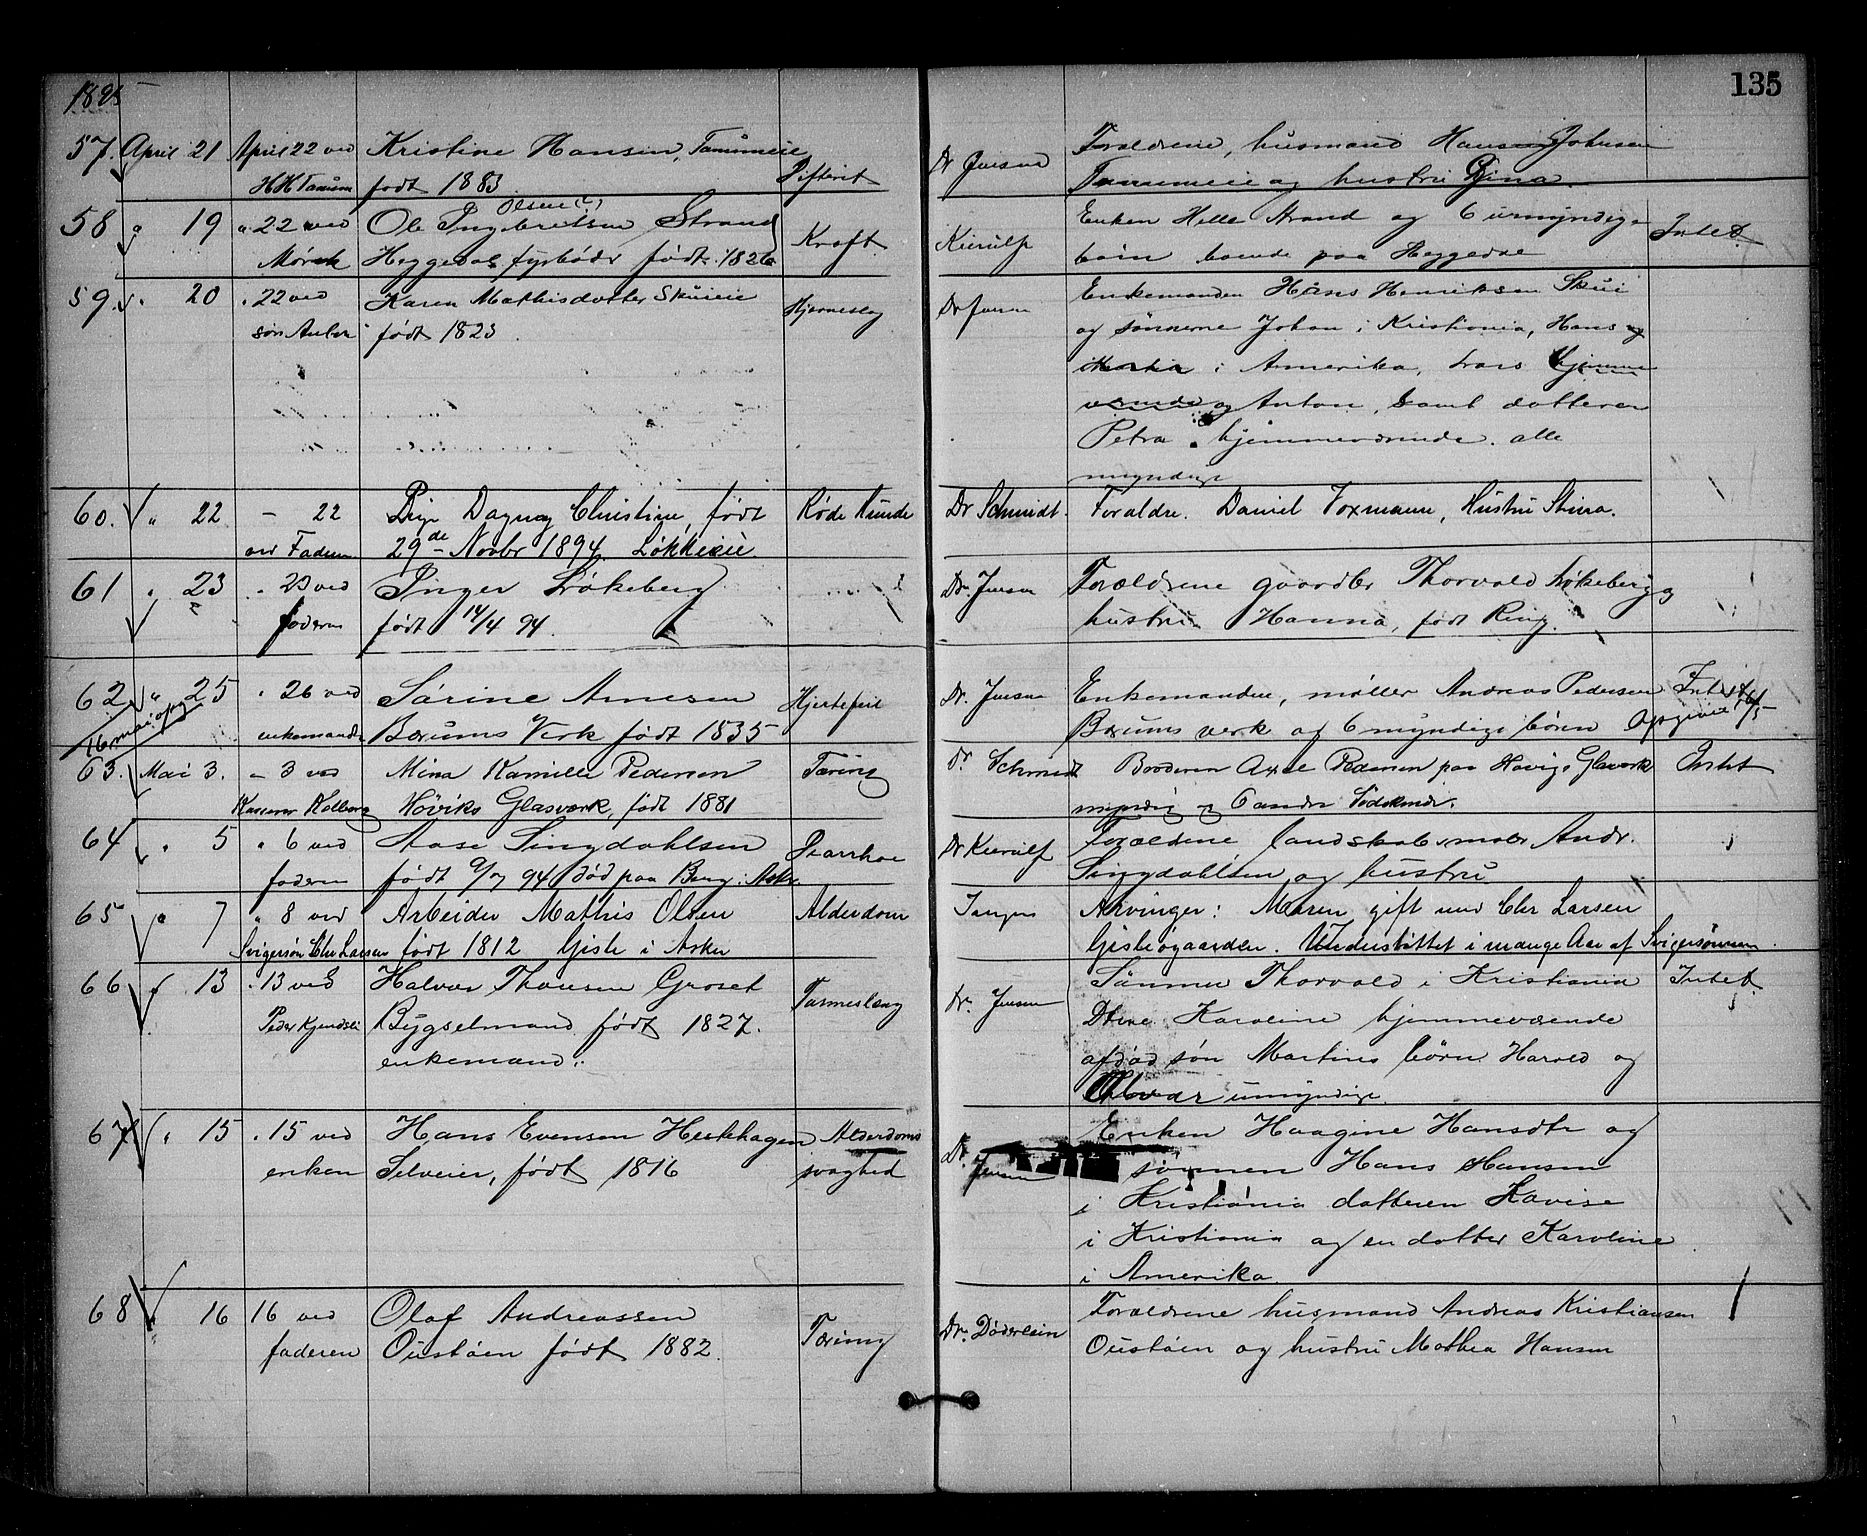 1895
135
57. April 21 April 22 ved Kristine Hansen, Tanumeie Difterit Dr Jensen Forældrene, husmand Hans Johnsen
HHTanum født 1883. Tanumeie og hustru Dina.
Olsen (?)
58 " 19 " 22 ved Ole Ingebretsen Strand Kræft. Kierulf Enken Helle Strand og 6 umyndige Intet.
Mørck Heggedal fyrbøder født 1826 børn boende paa Heggedal
59. " 20 " 22 ved Karen Mathisdatter Skuieie Hjerneslag Dr Jensen Enkemanden Hans Henriksen Skui
søn Anton født 1823. og sønnerne Johan i Kristiania, Hans og
i Amerika, Lars hjemme
værende og Anton, samt datteren
Petra hjemmeværende. alle
myndige
60. " 22 – 22 Pige Dagny Christine, født Røde Hunde Dr Schmidt. Foraldre. Daniel Foxmann, Hustru Stina.
ved Faderen 29de Novbr 1894. Løkkeeie
61 " 23 " 23 ved Inger Løkeberg Dr. Jensen Forældrene gaardbr Thorvald Løkeberg og
faderen født 14/4 94. hustru Hanna, født Ring.
62 " 25 " 26 ved Sørine Arnesen Hjertefeil Dr. Jensen Enkemanden, møller Andreas Pedersen Intet
16 mai opgit enkemanden Bærums Verk født 1835 Bærums verk og 6 myndige børn Opgivet 16/5
63. Mai 3. – 3 ved Mina Kamilla Pedersen Tæring dr. Schmidt Broderen Axel Pedersen paa Høvigs Glasværk Intet
Kasserer Kolberg Høviks Glasværk, født 1881 myndig og 6 andre Sødskende.
64 " 5 " 6 ved Aase Singdahlsen Diarrhoe Dr Kierulf Forældrene landskabsmaler Andr.
faderen født 9/7 94 død paa Berg i Asker. Singdahlsen og hustru
65 " 7 " 8 ved Arbeider Mathis Olsen Alderdom Arvinger: Maren gift med Chr Larsen
Svigersøn Chr Larsen født 1812 Gisle i Asker Gisleøgaarden. Understøttet i mange Aar af Svigersønnen.
66 " 13 " 13 ved Halvor Thoresen Groset Tarmeslæng Dr. Jensen Sønnen Thorvald i Kristiania Intet.
Peder Kjendsli Bygselmand født 1827. Karoline hjemmeværende
enkemand. afdød søn Martins børn Harald og
umyndige.
67 " 15 " 15 ved Hans Evensen Hestehagen Alderdoms Dr. Enken Haagine Hansdtr og
enken Selveier, født 1816 svaghed Jensen sønnen Hans Hansen
i Kristiania datteren Lovise
i Kristiania og en datter Karoline
i Amerika.
68 " 16 16 ved Olaf Andreassen Tæring Dr. Døderlein Forældrene husmand Andreas Kristiansen
faderen Oustøen født 1882. Oustøen og hustru Mathea Hansen